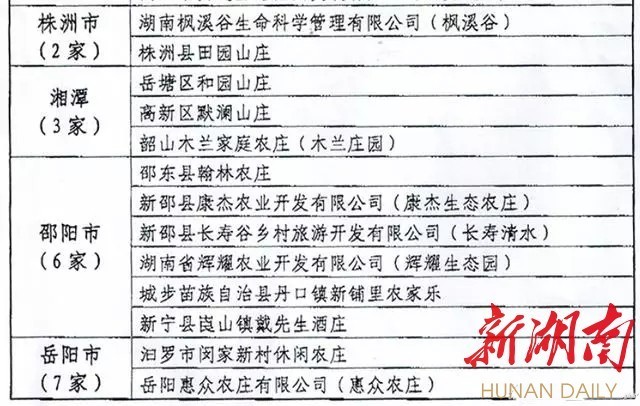 株洲市
(2家)
湖南枫溪谷生命科学管理有限公司（枫溪谷）
株洲县田园山庄
湘潭
(3家)
岳塘区和园山庄
高新区默澜山庄
韶山木兰家庭农庄（木兰庄园）
邵阳市
(6家)
邵东县翰林农庄
新邵县康杰农业开发有限公司（康杰生态农庄）
新邵县长寿谷乡村旅游开发有限公司（长寿清水）
湖南省辉耀农业开发有限公司（辉耀生态园）
城步苗族自治县丹口镇新铺里农家乐
新宁县崀山镇戴先生酒庄
岳阳市
(7家)
汩罗市闵家新村休闲农庄
岳阳惠众农庄有限公司（惠众农庄）
新湖南
HUNAN DAILY